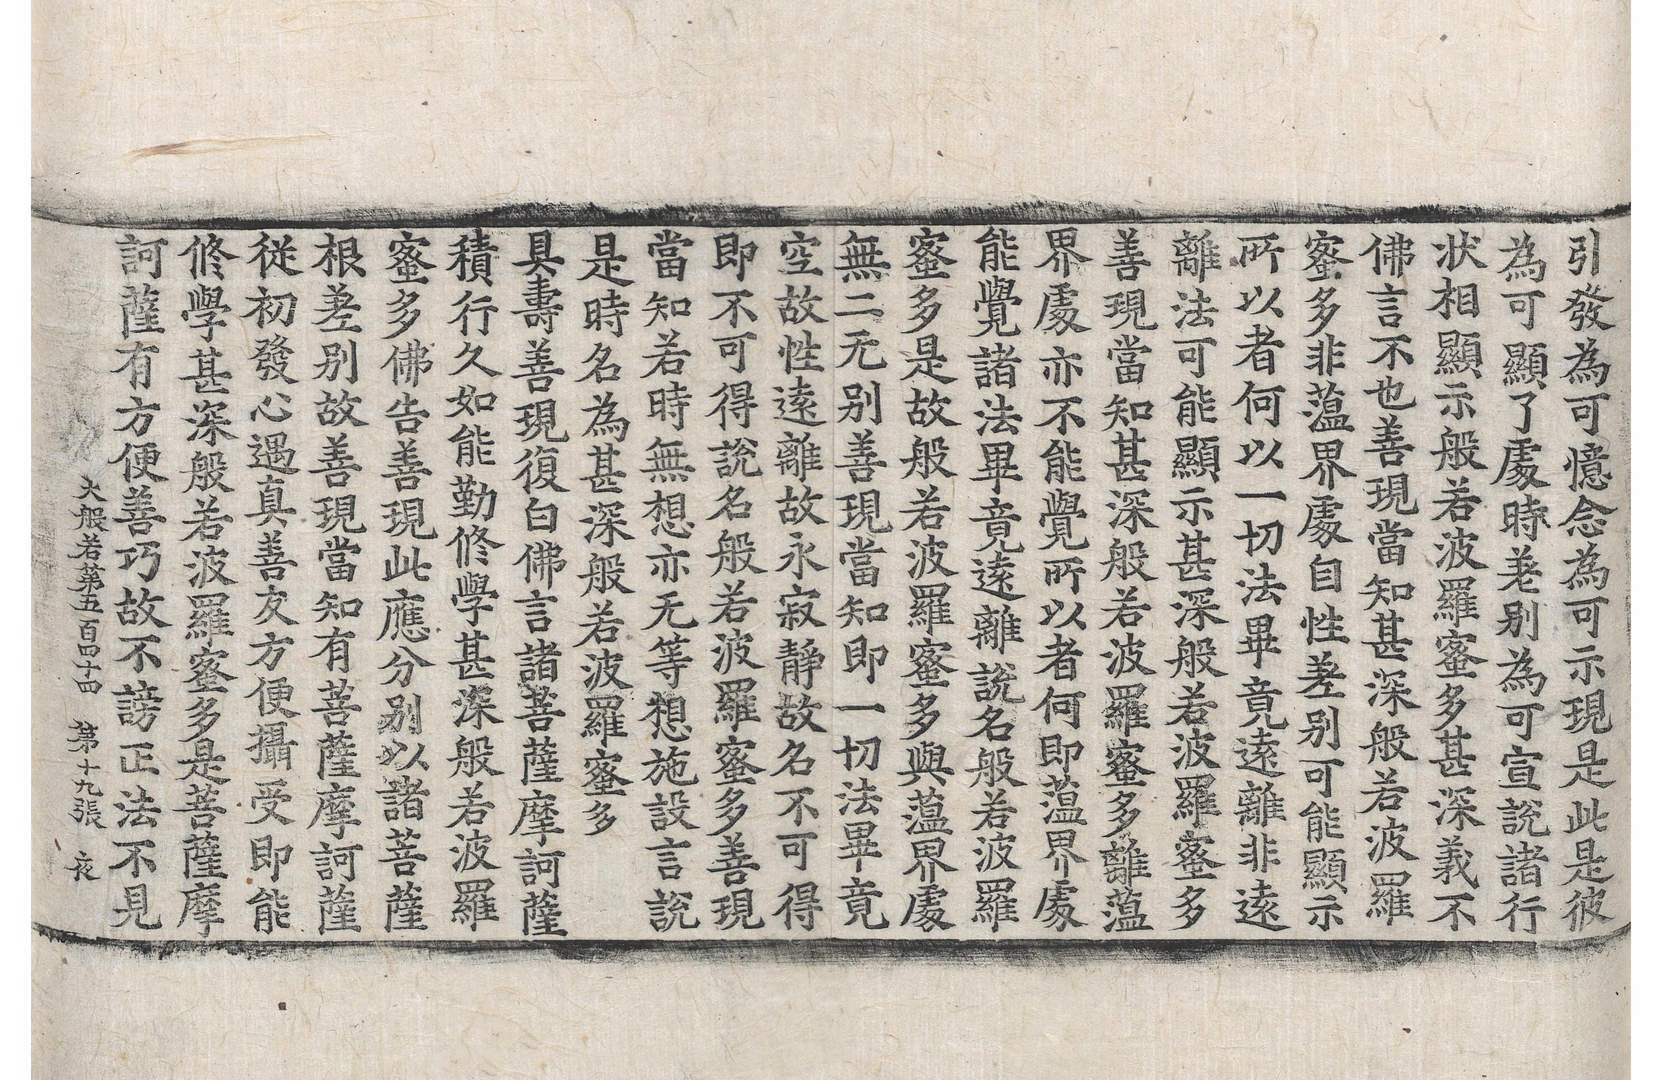 引發為可憶念為可示現是此是彼
為可顯了處時差别為可宣說諸行
狀相顯示般若波羅蜜多甚深義不
佛言不也善現當知甚深般若波羅
蜜多非藴界處自性差别可能顯示
所以者何以一切法畢竟逺離非逺
離法可能顯示甚深般若波羅蜜多
善現當知甚深般若波羅蜜多離藴
界處亦不能覺所以者何即藴界處
能覺諸法畢竟逺離說名般若波羅
蜜多是故般若波羅蜜多與藴界處
無二无别善現當知即一切法畢竟
空故性逺離故永寂靜故名不可得
即不可得說名般若波羅蜜多善現
當知若時無想亦无等想施設言說
是時名為甚深般若波羅蜜多
具壽善現復白佛言諸菩薩摩訶薩
積行久如能勤修學甚深般若波羅
蜜多佛告善現此應分别以諸菩薩
根差别故善現當知有菩薩摩訶薩
從初發心遇真善友方便攝受即能
修學甚深般若波羅蜜多是菩薩摩
訶薩有方便善巧故不謗正法不見
大般若第五百四十四　第十九張　夜